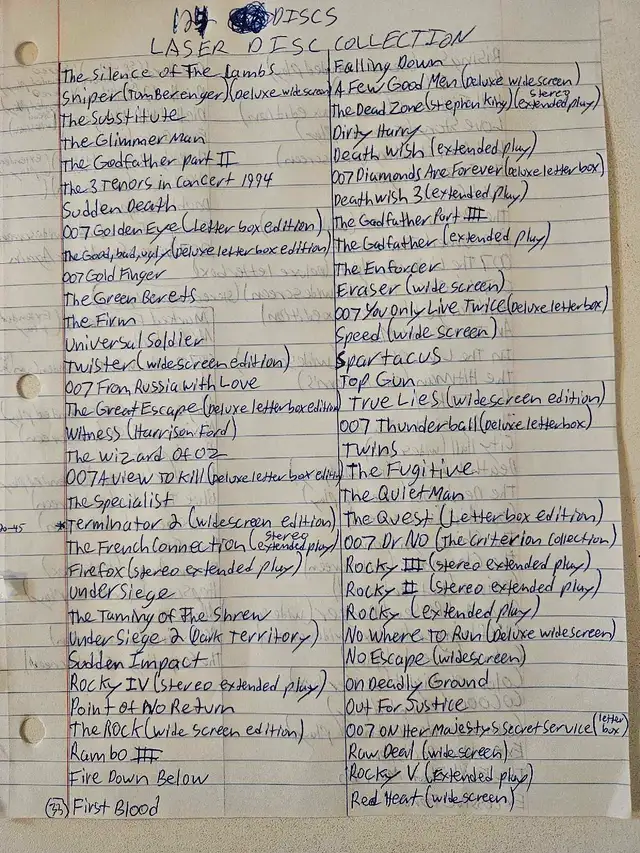 124 DISCS
LASER DISC COLLECTION
The Silence of The Lambs
Sniper (Tom Berenger) (Deluxe widescreen)
The Substitute
The Glimmer Man
The Godfather part II
The 3 Tenors in Concert 1994
Sudden Death
007 Golden Eye (Letter box edition)
The Good, bad, ugly (Deluxe letter box edition)
007 Gold Finger
The Green Berets
The Firm
Universal Soldier
Twister (widescreen edition)
007 From Russia with Love
The Great Escape (Deluxe letterbox edition)
Witness (Harrison Ford)
The Wizard Of OZ
007 A View To Kill (Deluxe letter box edition)
The Specialist
*Terminator 2 (widescreen edition)
The French Connection (stereo extended play)
Firefox (stereo extended play)
Under Siege
The Taming of The Shrew
Under Siege 2 (Dark Territory)
Sudden Impact
Rocky IV (stereo extended play)
Point of No Return
The Rock (wide screen edition)
Rambo III
Fire Down Below
33 First Blood
Falling Down
A Few Good Men (Deluxe widescreen)
The Dead Zone (Stephen King) (stereo extended play)
Dirty Harry
Death Wish (extended play)
007 Diamonds Are Forever (Deluxe letter box)
Deathwish 3 (extended play)
The Godfather Part III
The Godfather (extended play)
The Enforcer
Eraser (wide screen)
007 You Only Live Twice (Deluxe letterbox)
Speed (wide screen)
Spartacus
Top Gun
True Lies (widescreen edition)
007 Thunderball (Deluxe letterbox)
Twins
The Fugitive
The Quiet Man
The Quest (Letter box edition)
007 Dr NO (The Criterion Collection)
Rocky III (stereo extended play)
Rocky II (stereo extended play)
Rocky (extended play)
No Where To Run (Deluxe widescreen)
No Escape (widescreen)
On Deadly Ground
Out For Justice
007 On Her Majestys Secret Service (letter box)
Raw Deal (widescreen)
Rocky V (Extended play)
Red Heat (widescreen)